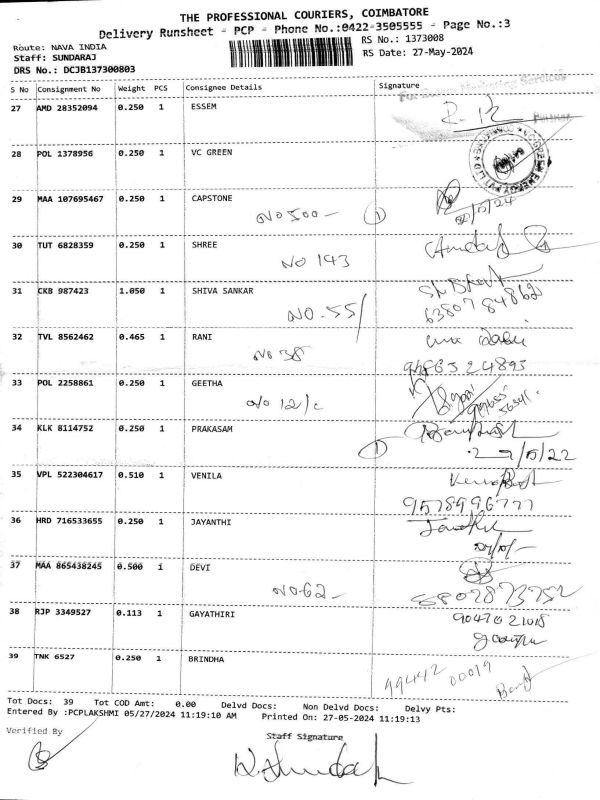 THE PROFESSIONAL COURIERS, COIMBATORE
Delivery Runsheet - PCP - Phone No.:0422-3505555 - Page No.:3
Route: NAVA INDIA
RS No.: 1373008
Staff: SUNDARAJ
RS Date: 27-May-2024
DRS No.: DCJB137300803
S No Consignment No Weight PCS Consignee Details Signature
27 AMD 28352094 0.250 1 ESSEM
28 POL 1378956 0.250 1 VC GREEN
29 MAA 107695467 0.250 1 CAPSTONE
NO 500 - 1
30 TUT 6828359 0.250 1 SHREE
NO 143
31 CKB 987423 1.050 1 SHIVA SANKAR
NO. 55/
6380784862
32 TVL 8562462 0.465 1 RANI
NO 38
33 POL 2258861 0.250 1 GEETHA
NO 12/c
34 KLK 8114752 0.250 1 PRAKASAM
1
35 VPL 522304617 0.510 1 VENILA
9578996777
36 HRD 716533655 0.250 1 JAYANTHI
37 MAA 865438245 0.500 1 DEVI
NO-62-
38 RJP 3349527 0.113 1 GAYATHIRI
9047021018
39 TNK 6527 0.250 1 BRINDHA
99442 00019
Tot Docs: 39 Tot COD Amt: 0.00 Delvd Docs: Non Delvd Docs: Delvy Pts:
Entered By :PCPLAKSHMI 05/27/2024 11:19:10 AM Printed On: 27-05-2024 11:19:13
Verified By
Staff Signature